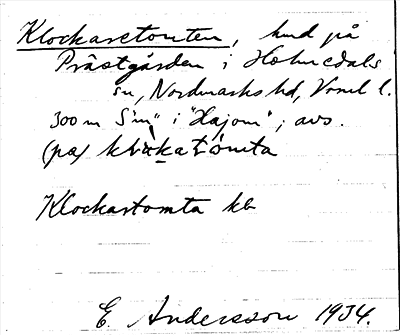 Klockaretomten, hmd på
Prästgården i Holmedals
sn, Nordmarks hd, Vrml l.
300 m S "m" i "Hajom"; avs.
(på) klåkatòmta
Klockartomta kb
E. Andersson 1934.